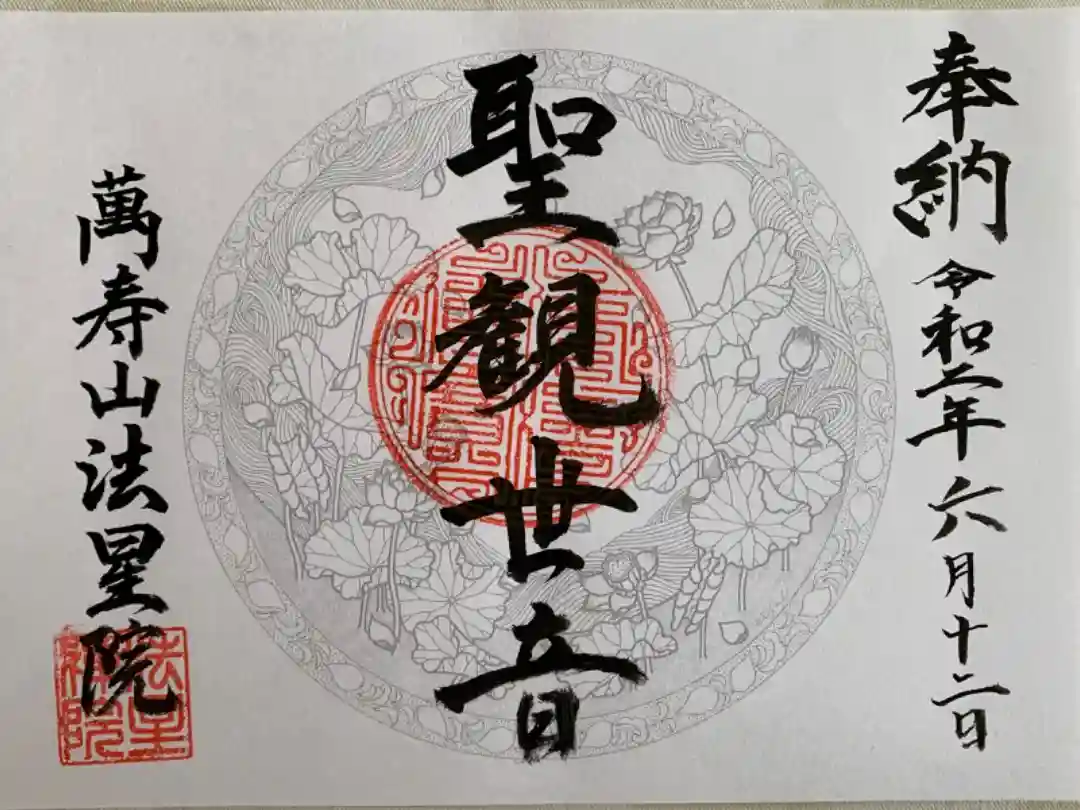 奉納 令和二年 六月十二日
聖観世音
萬寿山法星院